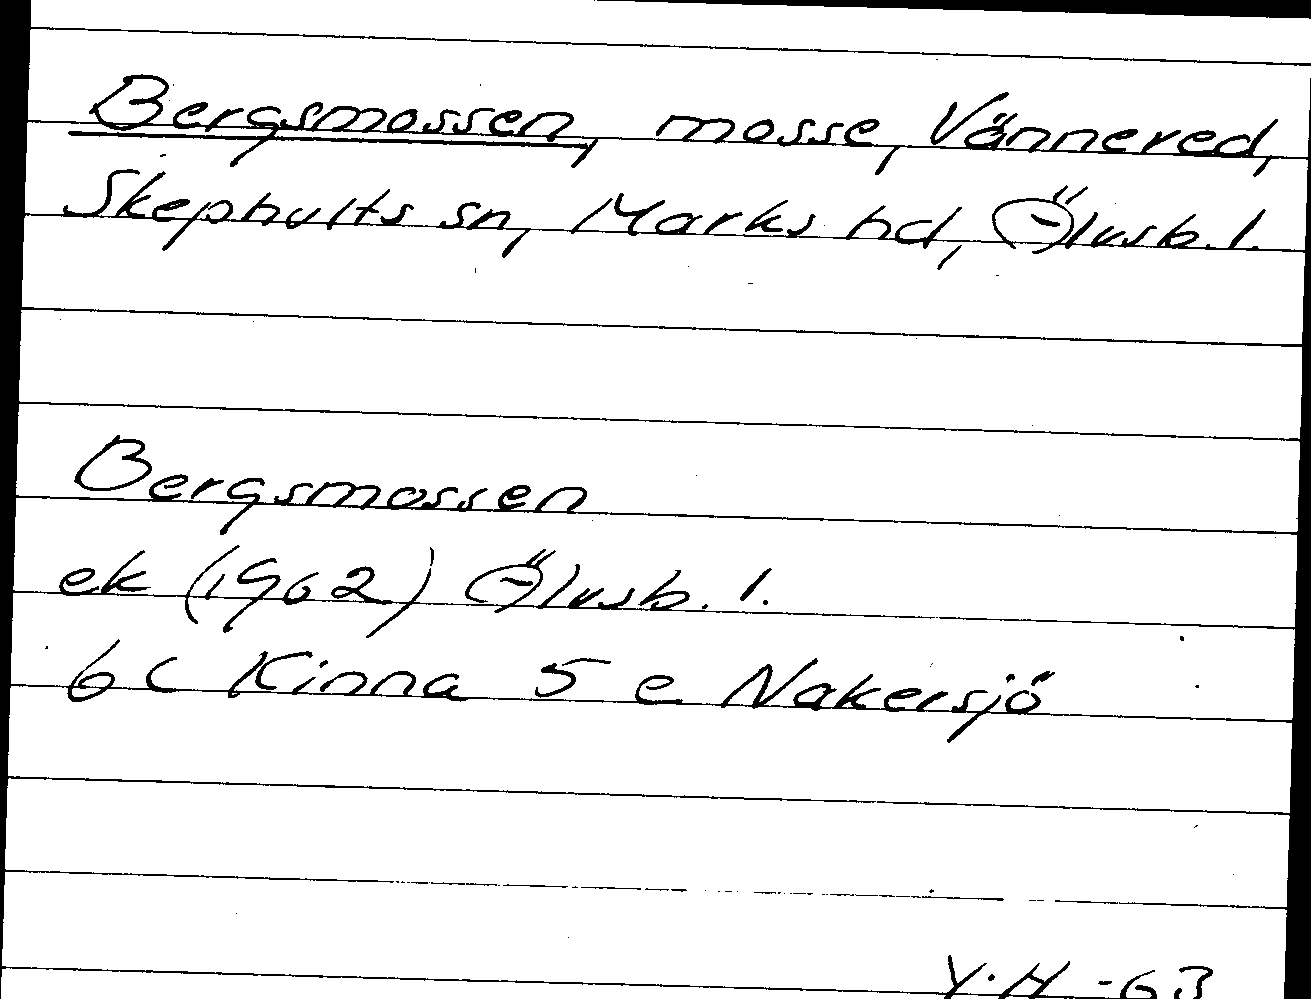 Bergsmossen, mosse, Vännered,
Skephults sn, Marks hd, Älvsb. l.
Bergsmossen
ek (1962) Älvsb. l.
6 C Kinna 5 e Nakersjö
Y.H -63